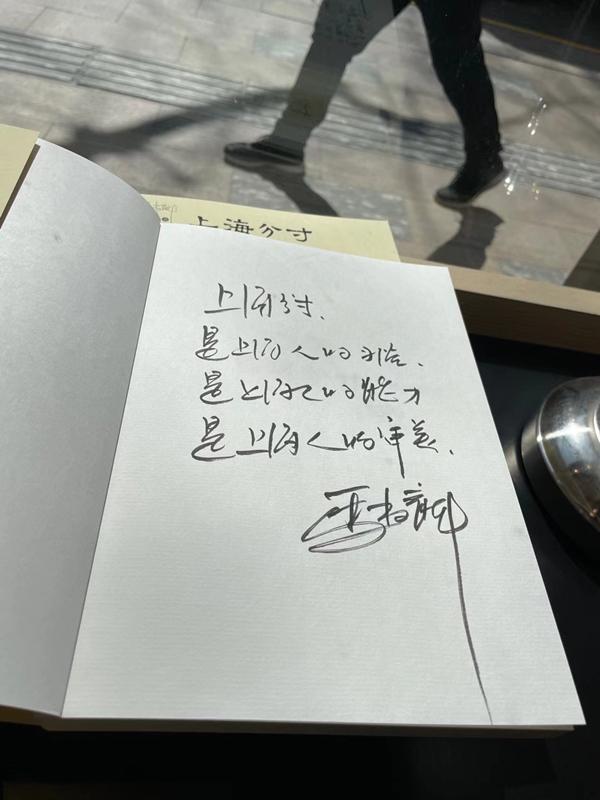 上海分寸
上海分寸、
是上海人的
是上海人的能力
是上海人的审美.
马尚龙